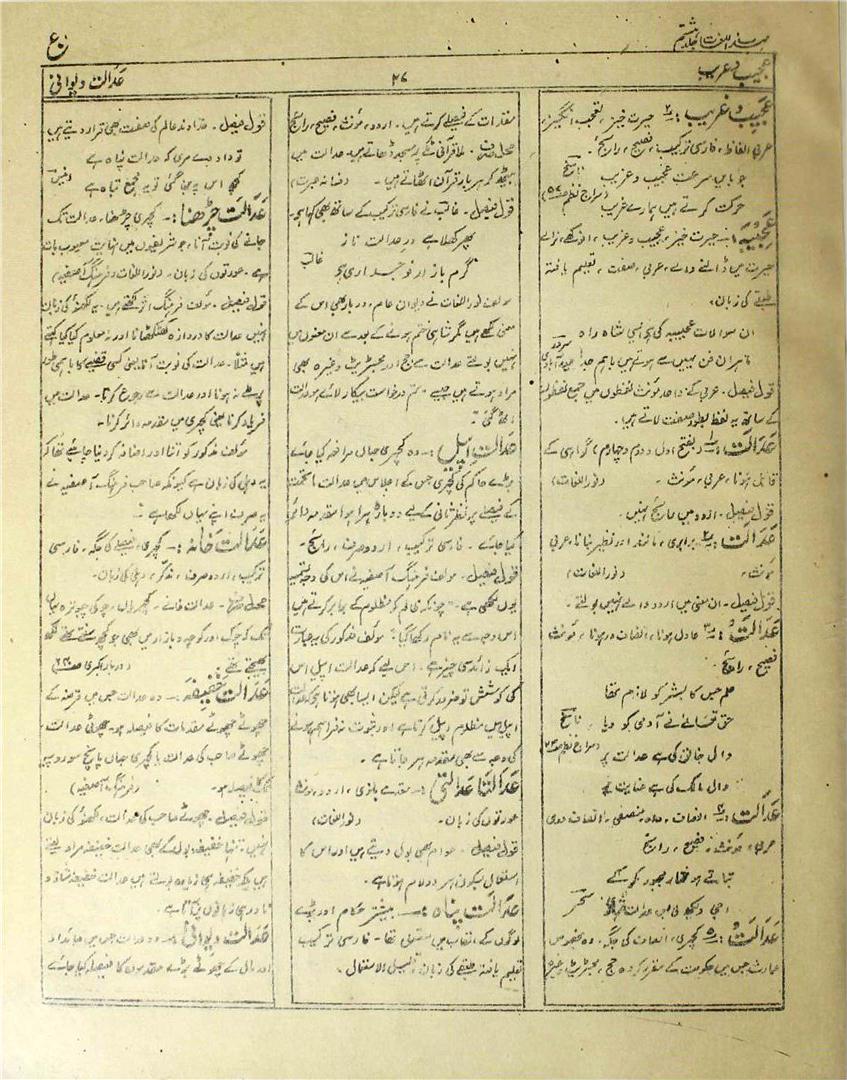 مہذب اللغات جلد ہشتم
ع
عجیب و غریب
۲۷
عدالت دیوانی
عجیب و غریب :۔ حیرت خیز، تعجب انگیز،
عربی الفاظ، فارسی ترکیب، فصیح، رائج۔
جو بایں سرعت عجیب و غریب
حرکت کرتے ہیں ہمارے غریب
(سراج نظم ص۵۲)
عجیبہ :۔ حیرت خیز، عجیب و غریب، انوکھے، نرالے
حیرت میں ڈالنے والے، عربی، صفت، تعلیم یافتہ
طبقے کی زبان۔
ان سوالات عجیبہ کی بحالی شاہ راہ
ماہران فن نہیں سے ہوتے ہیں باہم جدا
قول فیصل۔ عربی کے واحد مونث لفظوں میں جمع لفظوں
کے ساتھ یہ لفظ بطور صفت لاتے ہیں۔
عدالت :۔ (بفتح اول و دوم و چہارم) گواہی کے
قابل ہونا، عربی، مونث۔ (نوراللغات)
قول فیصل۔ اردو میں رائج نہیں۔
عدالت :۔ برابری، مانند اور نظیر بنانا، عربی
مونث۔ (نوراللغات)
قول فیصل۔ ان معنی میں اردو والے نہیں بولتے۔
عدالت :۔ عادل ہونا، انصاف ور ہونا، مونث
فصیح، رائج۔
علم جس کا بشر کو لازم تھا
حق تعالیٰ نے آدمی کو دیا
وال جانی کی ہے عدالت پر
وال مالک کی ہے عنایت پر
عدالت :۔ انصاف، داد، منصفی، انصاف دوی
عربی، مونث، فصیح، رائج
بناتے ہو مختار مجبور کر کے
اجی دیکھ لی بس عدالت تمہاری سحر
عدالت :۔ کچہری، انصاف کی جگہ، وہ محکمہ جس
عمارت جس میں حکومت کے مقرر کردہ جج، مجسٹریٹ وغیرہ
مقدمات کے فیصلے کرتے ہیں۔ اردو، مونث، فصیح، رائج
محل صرف۔ ملا قرآنی کے پر مسجد ڈھاتے ہیں۔ عدالت میں
بیٹھ کر ہر بار قرآن اٹھاتے ہیں۔ (فسانہ عبرت)
قول فیصل۔ غالب نے فارسی ترکیب کے ساتھ بھی کہا ہے۔
پھر کھلا ہے در عدالت ناز
گرم بازار فوجداری ہے
غالب
مولف نوراللغات نے دیوان عام، دربار بھی اس کے
معنی لکھے ہیں مگر شاہی ختم ہونے کے بعد سے ان معنوں میں
نہیں بولتے عدالت سے جج اور مجسٹریٹ وغیرہ بھی
مراد ہوتے ہیں جیسے۔ تم درخواست بیکار لائے عدالت
اٹھ گئی۔
عدالت اپیل :۔ وہ کچہری جہاں مرافعہ کیا جائے
بڑے حاکم کی کچہری جس کے اجلاس میں عدالت ماتحت
کے فیصلے پر نظر ثانی کے لیے دوبارہ ہارا ہوا مقدمہ دائر
کیا جائے۔ فارسی ترکیب، اردو صرف، رائج۔
قول فیصل۔ مولف فرہنگ آصفیہ نے اس کی وجہ تسمیہ
یوں لکھی ہے۔ "چونکہ ظالم کو مظلوم کے برابر کرتے ہیں
اس وجہ سے یہ نام رکھا گیا۔" مولف مذکور کی یہ عبارت
ایک زائد سی چیز ہے۔ اس لیے کہ عدالت اپیل اس
کی کوشش تو ضرور کرتی ہے لیکن ایسا بھی ہوتا ہے کہ عدالت
اپیل میں مظلوم اپیل کرتا ہے اور ثبوت نہ فراہم ہونے
کی وجہ سے بھی مقدمہ ہر جاتا ہے۔
عدالتا عدالتی :۔ مقدمے بازی، اردو، مونث
عورتوں کی زبان۔ (نوراللغات)
قول فیصل۔ عوام بھی بول دیتے ہیں اور اس کا
استعمال بسکون ہر دو لام ہوتا ہے۔
عدالت پناہ :۔ بیشتر حکام اور بڑے
لوگوں کے القاب میں مستعمل تھا۔ فارسی ترکیب
تعلیم یافتہ طبقے کی زبان، قلیل الاستعمال۔
قول فیصل۔ خداوند عالم کی صفت بھی قرار دیتے ہیں
تو داد دے مری کہ عدالت پناہ ہے
کچھ اس پہ بن گئی تو یہ مجمع تباہ ہے
انیس
عدالت چڑھنا :۔ کچہری چڑھنا، عدالت تک
جانے کی نوبت آنا، جو شریفوں میں نہایت معیوب بات
ہے۔ عورتوں کی زبان۔ (نوراللغات و فرہنگ آصفیہ)
قول فیصل۔ مولف فرہنگ اثر لکھتے ہیں۔ یہ لکھنؤ کی زبان
نہیں عدالت کا دروازہ کھٹکھٹانا اور نہ معلوم کیا کیا کہتے
ہیں مثلاً۔ عدالت کی نوبت آنا یعنی کسی قضیے کا باہمی طور
پر طے نہ ہونا اور عدالت سے رجوع کرنا۔ عدالت میں
فریاد کرنا یعنی کچہری میں مقدمہ دائر کرنا۔
مولف مذکور کو اتنا اور اضافہ کر دینا چاہیے تھا کہ
یہ دہلی کی زبان ہے کیونکہ صاحب فرہنگ آصفیہ نے
یہ صرف اپنے یہاں لکھا ہے۔
عدالت خانہ :۔ کچہری، فیصلے کی جگہ، فارسی
ترکیب، اردو صرف، مذکر، دہلی کی زبان۔
محل صرف۔ عدالت خانے۔ کچہریوں، چوکی چبوترہ یہاں
تک کہ چوک اور کوچہ و بازار میں بھی جو کچھ سنتے تھے لکھ
بھیجتے تھے۔ (دربار اکبری)
عدالت خفیفہ :۔ وہ عدالت جس میں قرضہ کے
چھوٹے چھوٹے مقدمات کا فیصلہ ہو۔ چھوٹی عدالت،
چھوٹے صاحب کی عدالت یا کچہری جہاں پانچ سو روپیہ
تک کا فیصلہ ہو۔ (فرہنگ آصفیہ)
قول فیصل۔ چھوٹے صاحب کی عدالت، لکھنؤ کی زبان
نہیں، تنہا خفیفہ بول کے بھی عدالت خفیفہ مراد لیتے
ہیں بلکہ خفیفہ ہی زیادہ بولتے ہیں عدالت خفیفہ شاذ و
نادر ہی زبانوں پر آتا ہے۔
عدالت دیوانی :۔ وہ عدالت جس میں جائداد
اور مال کے چھوٹے بڑے مقدموں کا فیصلہ کیا جائے